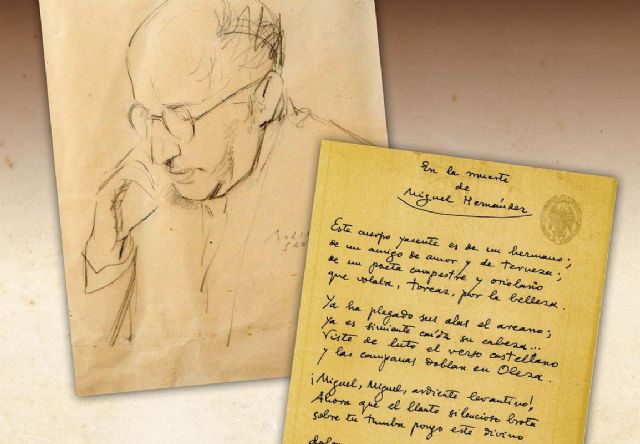 En la muerte
de
Miguel Hernández
Este cuerpo yacente es de un hermano;
de un amigo de amor y de terneza;
de un poeta campestre y oriolano
que volaba, torcaz, por la belleza.
Ya ha plegado sus alas el arcano;
ya es simiente caída su cabeza...
Viste de luto el verso castellano
y las campanas doblan en Oleza.
¡Miguel, Miguel, ardiente levantino!,
Ahora que el llanto silencioso brota
sobre tu tumba pongo este divino